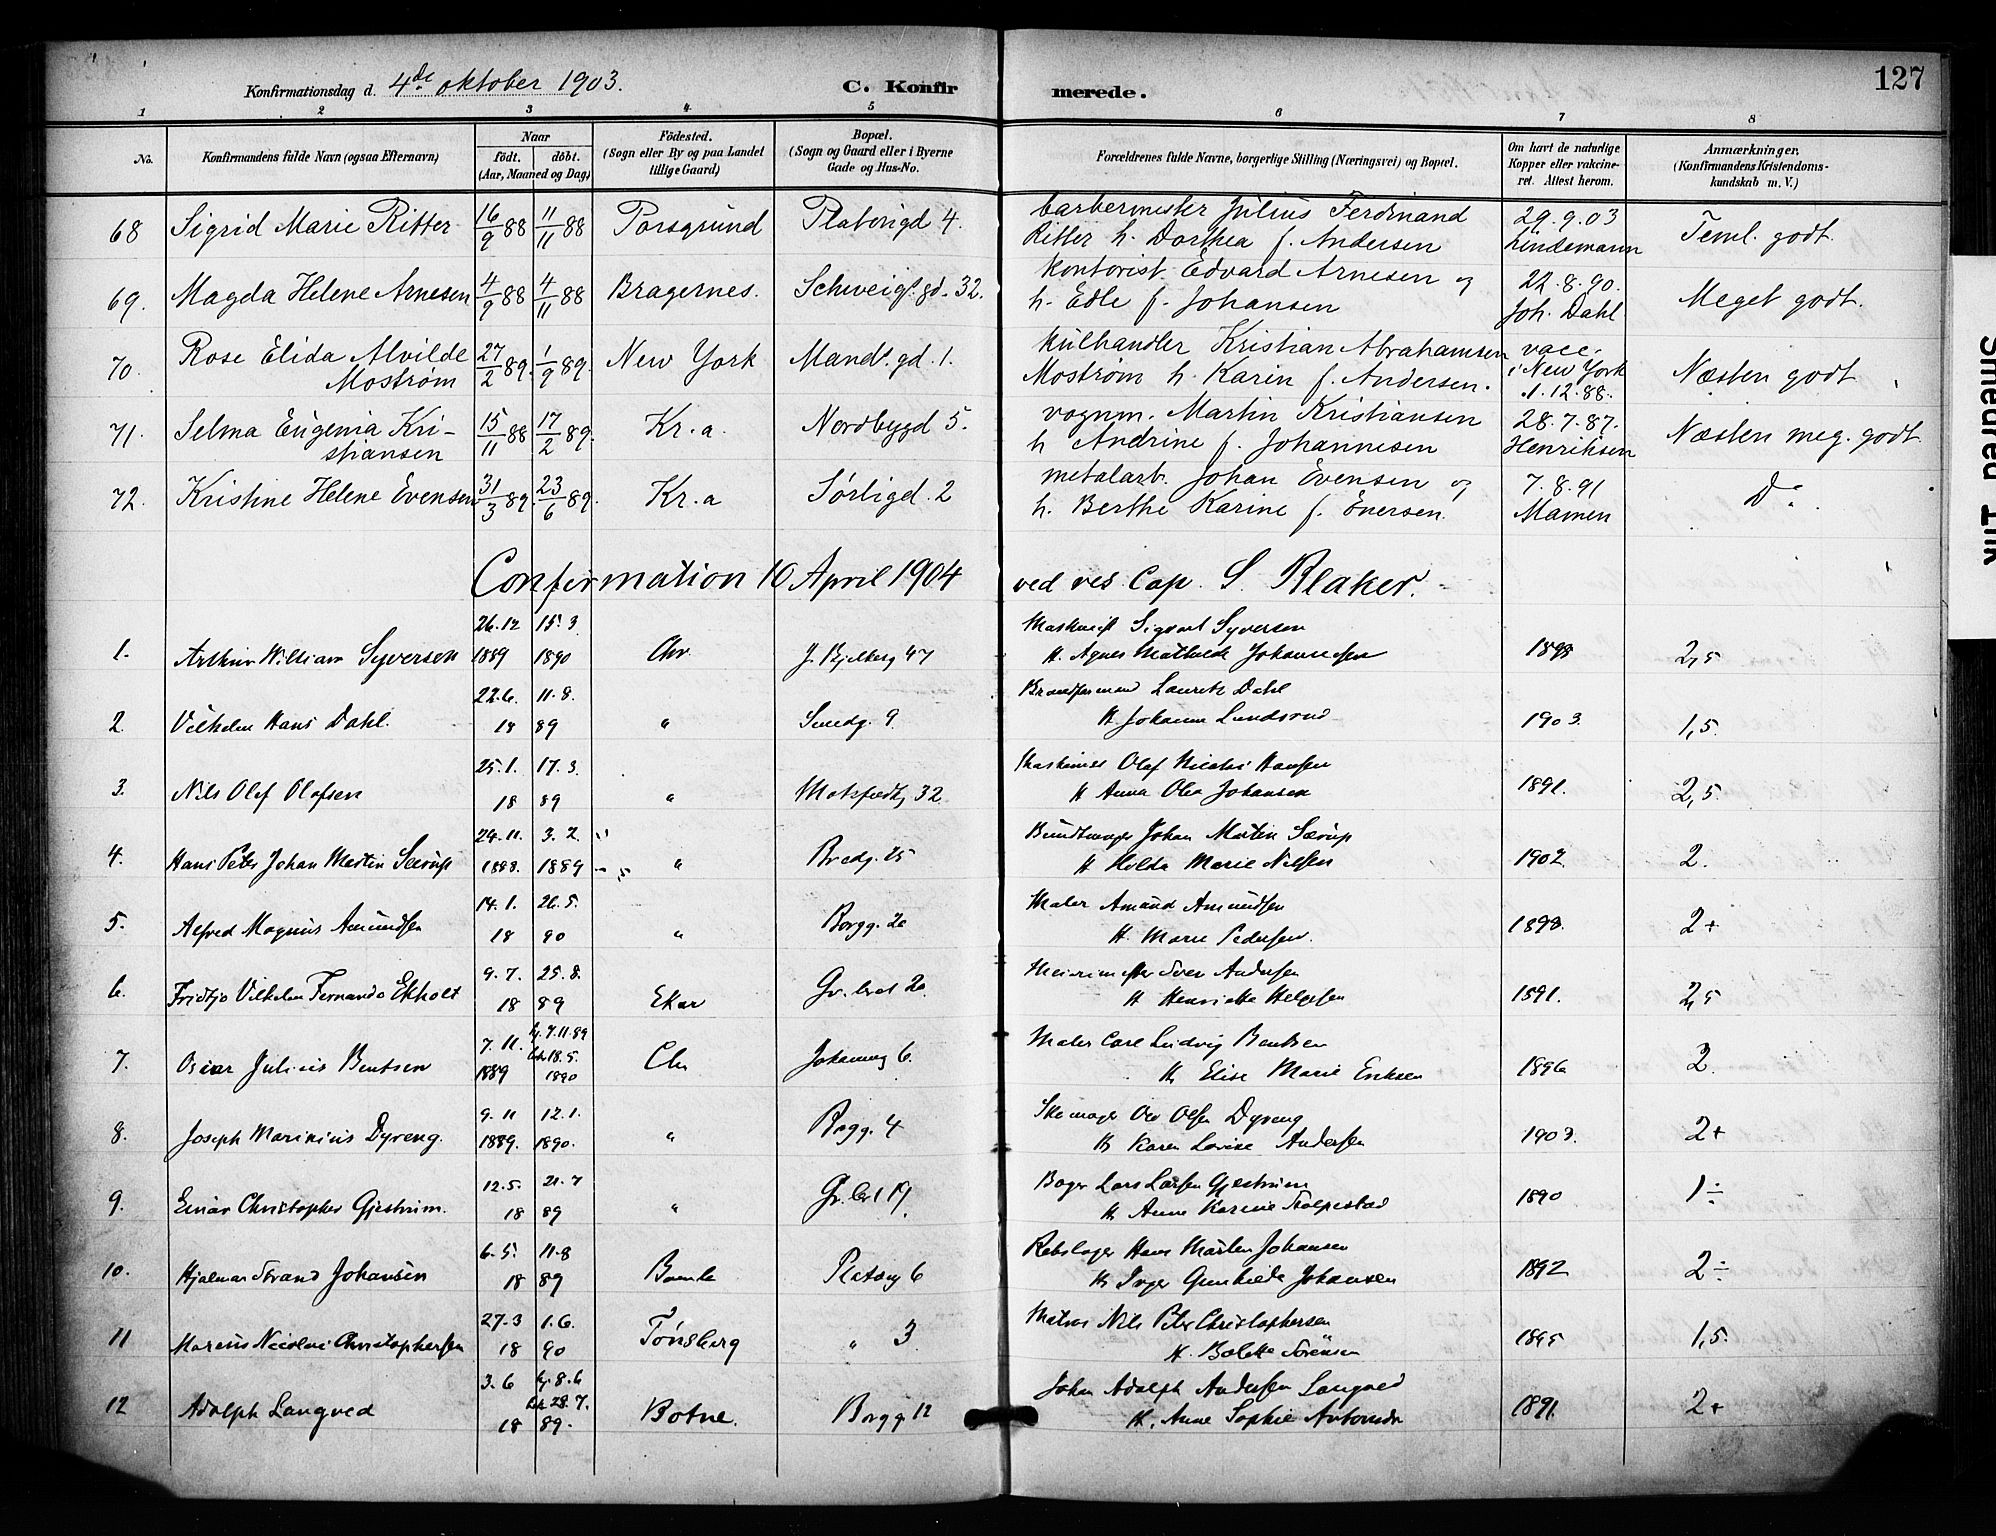 127
Konfirmationsdag d. 4de oktober 1903. C. Konfirmerede.
1 2 3 4 5 6 7 8
No. Konfirmandens fulde Navn (ogsaa Efternavn) Naar født. døbt. (Aar, Maaned og Dag) Fødested. (Sogn eller By og paa Landet tillige Gaard) Bopæl. (Sogn og Gaard eller i Byerne Gade og Hus-No. Forældrenes fulde Navne, borgerlige Stilling (Næringsvei) og Bopæl. Om havt de naturlige Kopper eller vakcineret. Attest herom. Anmærkninger, (Konfirmandens Kristendomskundskab m. V.)
68 Sigrid Marie Ritter 16/9 88 11/11 88 Porsgrund Platougd 4. barbermester Julius Ferdinand Ritter h. Dorthea f. Andersen 29.9.03 Lindemann Teml. godt.
69. Magda Helene Arnesen 4/9 88 4/11 88 Bragernes. Schweigs. gd. 32. kontorist Edvard Arnesen og h. Edle f. Johansen 22.8.90. Joh. Dahl Meget godt.
70. Rose Elida Alvilde Mostrøm 27/2 89. 1/9 89. New York Mands. gd. 1. kulhandler Kristian Abrahamsen Mostrøm h. Karin f. Andersen. vacc. i New York 1.12.88. Næsten godt
71. Selma Eugenia Kristiansen 15/11 88 17/2 89. Kr.a. Nordbygd 5. vognm. Martin Kristiansen h Andrine f. Johannesen 28.7.87. Henriksen Næsten meg. godt
72. Kristine Helene Evensen 31/3 89. 23/6 89. Kr.a Sørligd. 2 metalarb. Johan Evensen og h. Berthe Karine f. Enersen. 7.8.91 Mamen Do.
Confirmation 10 April 1904 ved res. Cap. S. Klaker.
1. Arthur William Syversen 26.12 1889 15.3 1890 Chr. 47 Sigvart Syversen H. Agnes Mathilde Johannesen 2,5
2. Vilhelm Hans Dahl. 22.6. 11.8. 18 89 " Smedg. 9. Lauritz Dahl H. Johanne 1903. 1,5.
3. Nils Olof Olofsen 25.1. 17.3. 18 89 " 32. Olof Nicolai Hansen H Anna Olea Johansen 1891. 2,5.
4. Hans Peter Johan Martin Særup 24.11. 1888. 3.2. 1889 " Bredg. 25 Bundtmager Johan Martin Særup H Hulda Marie Nilsen 1902. 2.
5. Alfred Magnus Amundsen 14.1. 26.5. 18 90 " Borgg. 20 Maler Amund Amundsen H. Marie Pedersen. 2+
6. Fridtjo Vilhelm Fernando Ekholt 9.7. 25.8. 18 89 Eker Gr. leret 20 Andersen H Henriette Helgesen 1891. 2,5
7. Oscar Julius Bentsen 7.11. 1889 hj. 7.11.89 18.5. 1890 Chr 6. Maler Carl Ludvig Bentsen H. Elise Marie Eriksen 1896 2.
8. Joseph Marinius Dyreng. 9.11 1889. 12.1. 1890. " Bogg. 4 Skomager Ole Olsen Dyreng H Karen Lovise Andersen 1903. 2+
9. Einar Christopher Gjestrum. 12.5. 21.7 18 89 " Gr. leret 19. Bager Lars Larsen Gjestrum H. Anne Karine Stolpestad 1890 1÷
10. Hjalmar Strand Johansen 6.5. 11.8 18 89 Bamle Platoug 6 Rebslager Hans Martin Johansen H. Inger Gunhilde Johansen 1892 2÷
11 Marius Nicolai Christophersen 27.3 1.6. 18 90 Tönsberg " 3 Matros Nils Peter Christophersen H. Bolette Sörensen 1895 1,5.
12 Adolph Langved 3.6 hj. 8.6 28.7. 18 89. Botne. Borgg. 12 Johan Adolph Andersen Langved H. Anne Sophie 1891. 2+
Smedred Trk